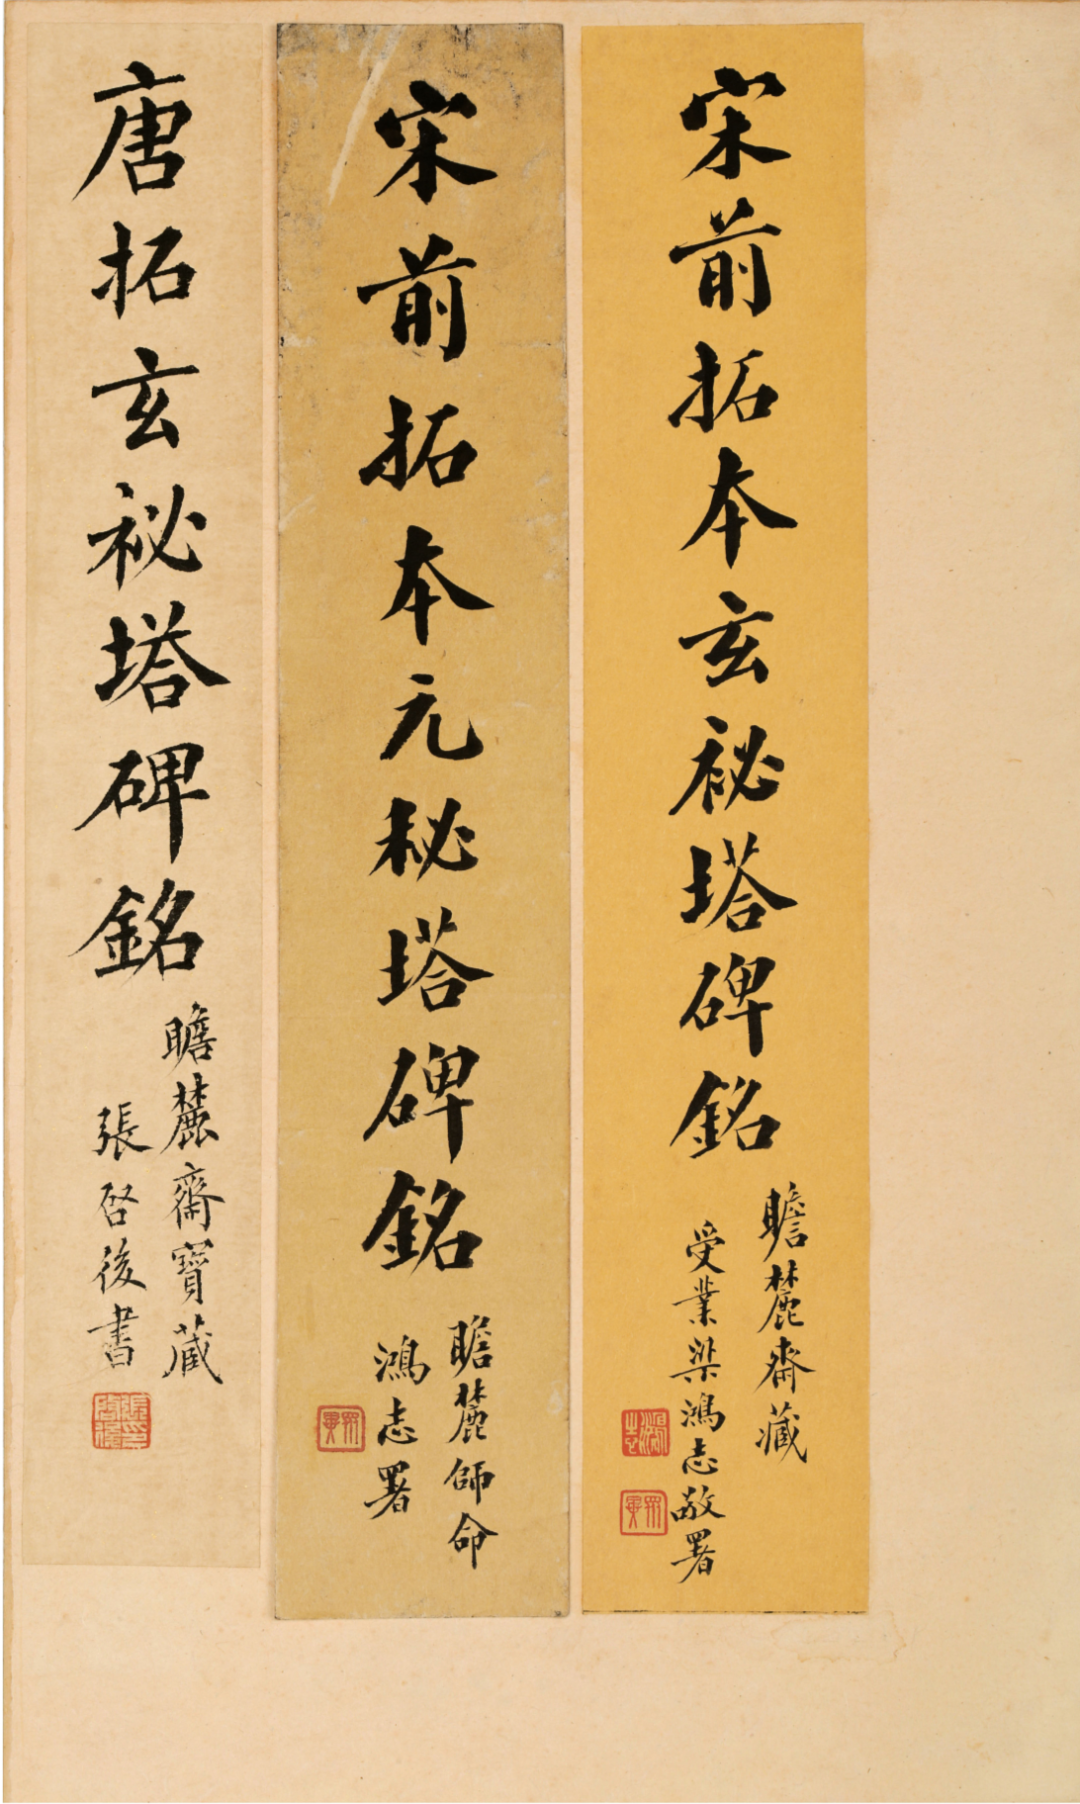 宋前拓本玄祕塔碑銘
瞻麓齋藏
受業梁鴻志敬署
鴻志
眾異
宋前拓本元秘塔碑銘
瞻麓師命
鴻志署
眾異
唐拓玄祕塔碑銘
瞻麓齋寶藏
張啓後書